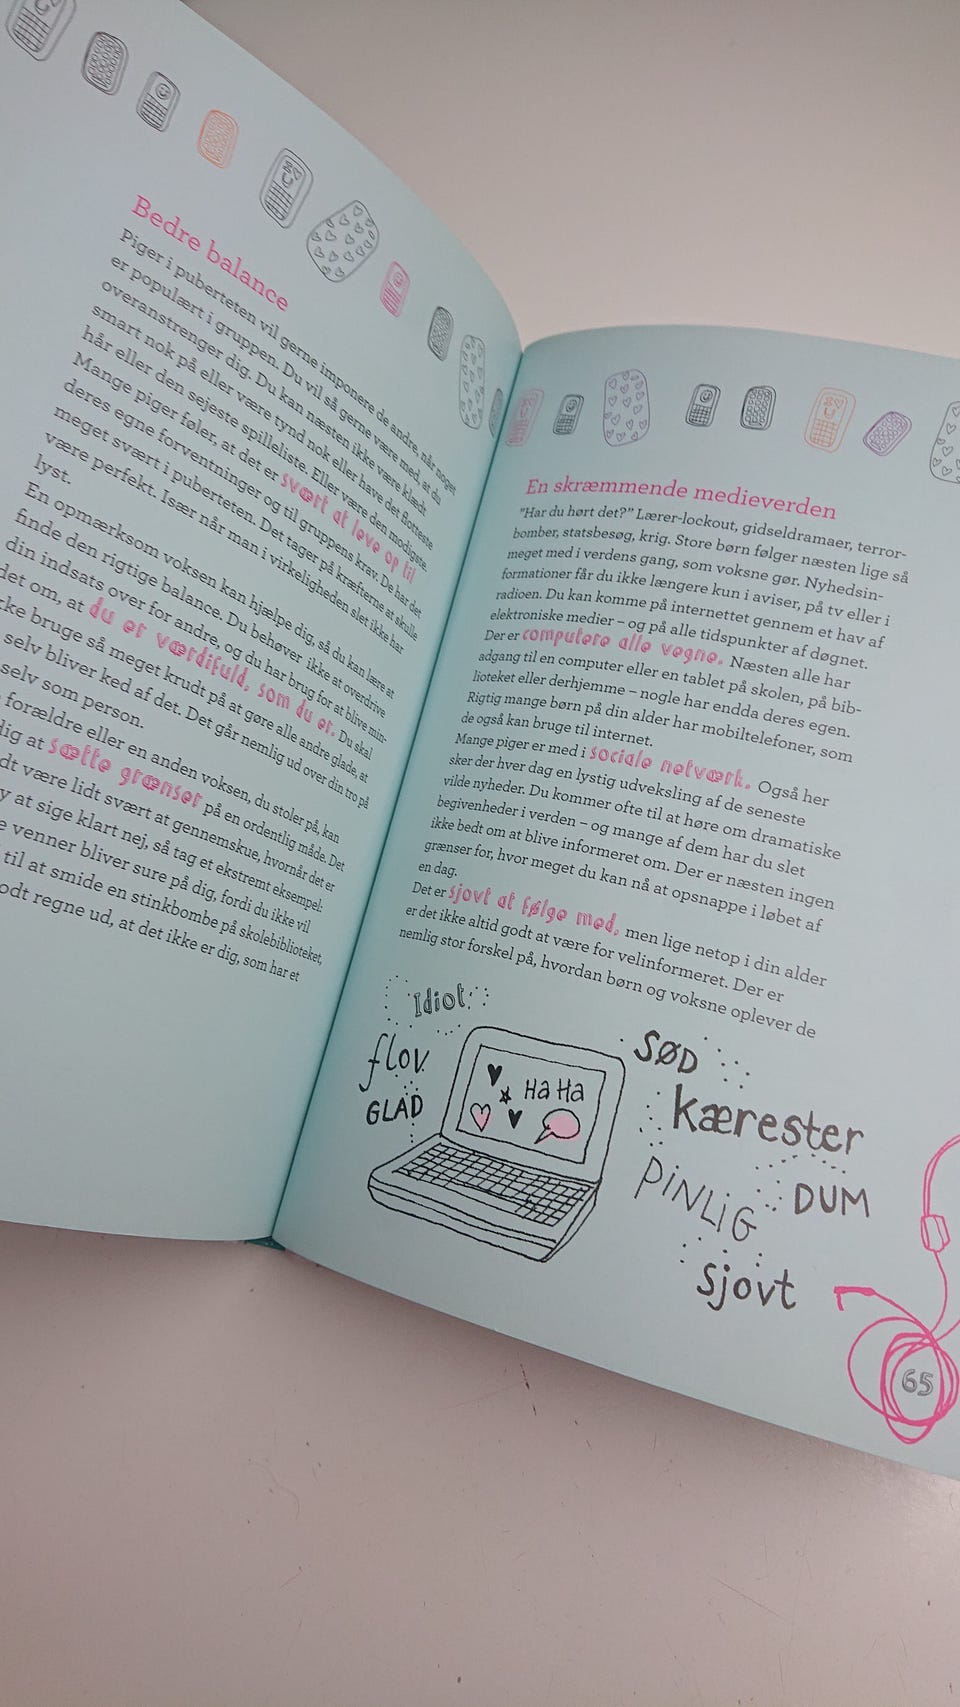 Bedre balance
Piger i puberteten vil gerne imponere de andre, når noget
er populært i gruppen. Du vil så gerne være med, at du
overanstrenger dig. Du kan næsten ikke være klædt
smart nok på eller være tynd nok eller have det flotteste
hår eller den sejeste spilleliste. Eller være den modigste.
Mange piger føler, at det er svært at leve op til
deres egne forventninger og til gruppens krav. De har det
meget svært i puberteten. Det tager på kræfterne at skulle
være perfekt. Især når man i virkeligheden slet ikke har
lyst.
En opmærksom voksen kan hjælpe dig, så du kan lære at
finde den rigtige balance. Du behøver ikke at overdrive
din indsats over for andre, og du har brug for at blive min-
det om, at du er værdifuld, som du er. Du skal
ke bruge så meget krudt på at gøre alle andre glade, at
selv bliver ked af det. Det går nemlig ud over din tro på
selv som person.
forældre eller en anden voksen, du stoler på, kan
dig at sætte grænser på en ordentlig måde. Det
dt være lidt svært at gennemskue, hvornår det er
y at sige klart nej, så tag et ekstremt eksempel:
e venner bliver sure på dig, fordi du ikke vil
til at smide en stinkbombe på skolebiblioteket,
odt regne ud, at det ikke er dig, som har et
En skræmmende medieverden
"Har du hørt det?" Lærer-lockout, gidseldramaer, terror-
bomber, statsbesøg, krig. Store børn følger næsten lige så
meget med i verdens gang, som voksne gør. Nyhedsin-
formationer får du ikke længere kun i aviser, på tv eller i
radioen. Du kan komme på internettet gennem et hav af
elektroniske medier – og på alle tidspunkter af døgnet.
Der er computere alle vegne. Næsten alle har
adgang til en computer eller en tablet på skolen, på bib-
lioteket eller derhjemme – nogle har endda deres egen.
Rigtig mange børn på din alder har mobiltelefoner, som
de også kan bruge til internet.
Mange piger er med i sociale netværk. Også her
sker der hver dag en lystig udveksling af de seneste
vilde nyheder. Du kommer ofte til at høre om dramatiske
begivenheder i verden – og mange af dem har du slet
ikke bedt om at blive informeret om. Der er næsten ingen
grænser for, hvor meget du kan nå at opsnappe i løbet af
en dag.
Det er sjovt at følge med, men lige netop i din alder
er det ikke altid godt at være for velinformeret. Der er
nemlig stor forskel på, hvordan børn og voksne oplever de
Idiot
flov
GLAD
Ha Ha
SØD
kærester
PiNLiG
DUM
sjovt
65